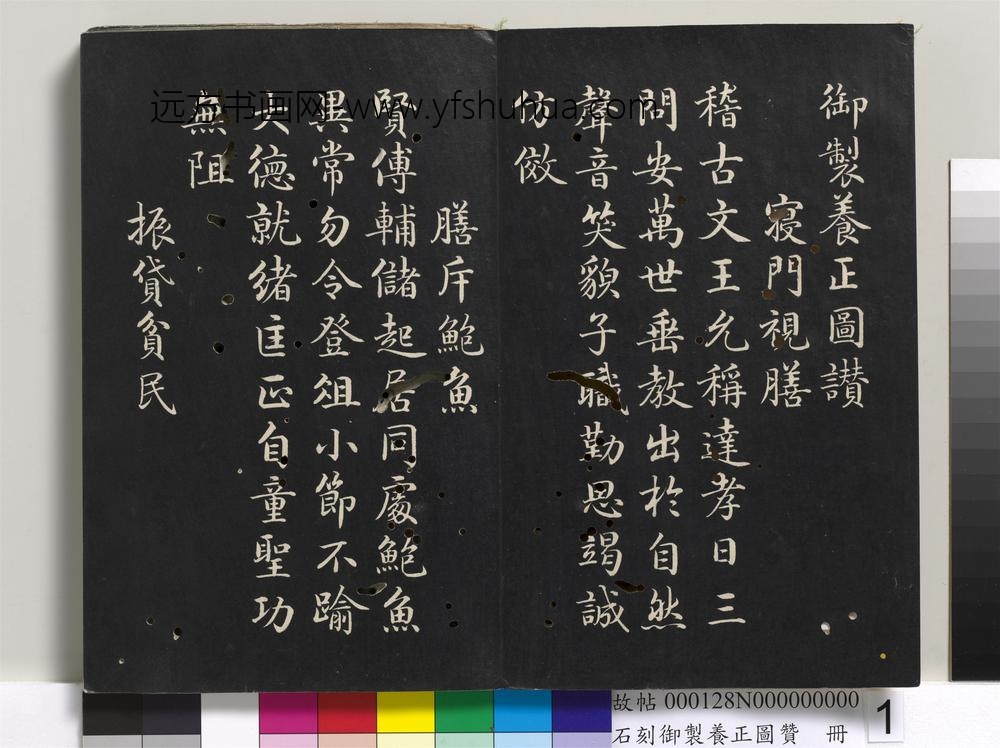 御製養正圖讃
寢門視膳
稽古文王允稱達孝日三
問安萬世垂教出於自然
聲音笑貌子職勤思竭誠
仿傚
膳斥鮑魚
賢傅輔儲起居同處鮑魚
異常勿令登俎小節不踰
大德就緒匡正自童聖功
無阻
振貸貧民
远方书画网 www.yfshuhua.com
故帖 000128N000000000
石刻御製養正圖贊 冊
1